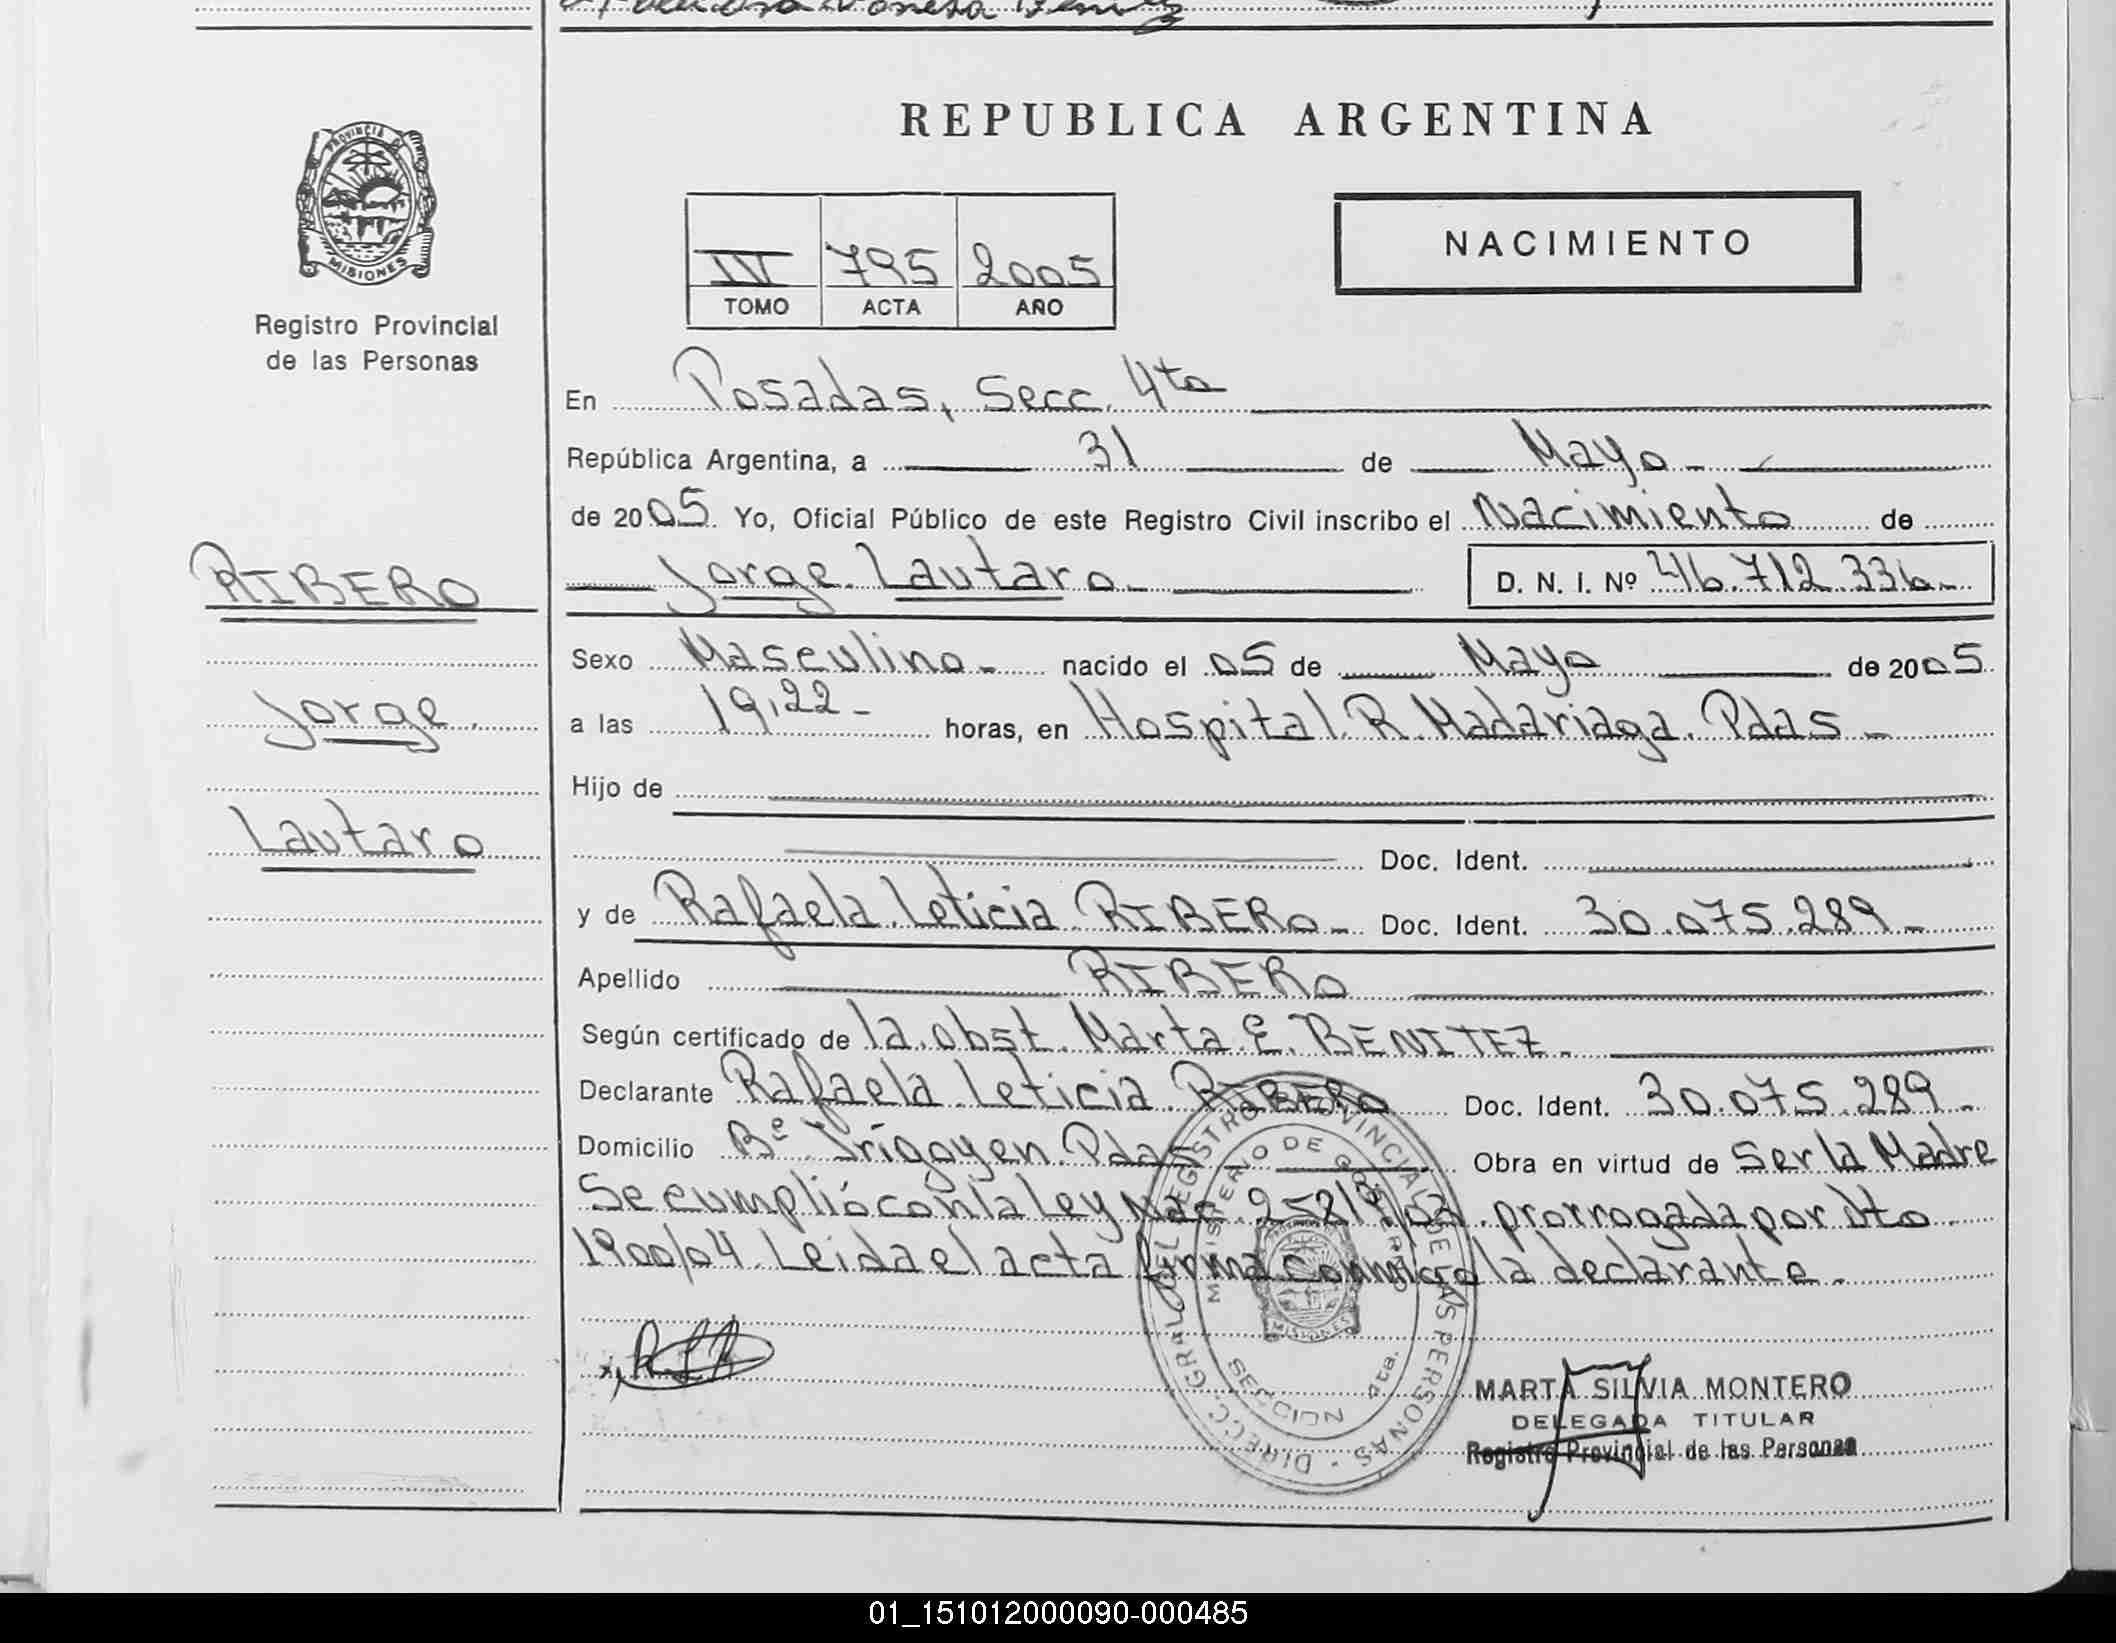 REPUBLICA ARGENTINA
PROVINCIA DE
MISIONES
Registro Provincial
de las Personas
NACIMIENTO
IV 795 2005
TOMO ACTA AÑO
En Posadas, Secc. 4ta
República Argentina, a 31 de Mayo
de 2005. Yo, Oficial Público de este Registro Civil inscribo el Nacimiento de
RIBERO
Jorge Lautaro D. N. I. Nº 46.712.336
Sexo Masculino nacido el 05 de Mayo de 2005
Jorge
a las 19,22 horas, en Hospital R. Madariaga. Pdas
Hijo de
Lautaro
Doc. Ident.
y de Rafaela Leticia RIBERO Doc. Ident. 30.075.289
Apellido RIBERO
Según certificado de la obst. Marta E. BENITEZ
Declarante Rafaela Leticia RIBERO Doc. Ident. 30.075.289
Domicilio Bº Irigoyen Pdas Obra en virtud de Ser la Madre
Se cumplió con la Ley Nac. prorrogada por Dto
1900/04. Leida el acta firma conmigo la declarante.
DIRECC. GRAL. DEL REGISTRO PROVINCIAL DE LAS PERSONAS
MINISTERIO DE GOBIERNO
MISIONES
SECCION 4ta.
MARTA SILVIA MONTERO
DELEGADA TITULAR
Registro Provincial de las Personas
01_151012000090-000485